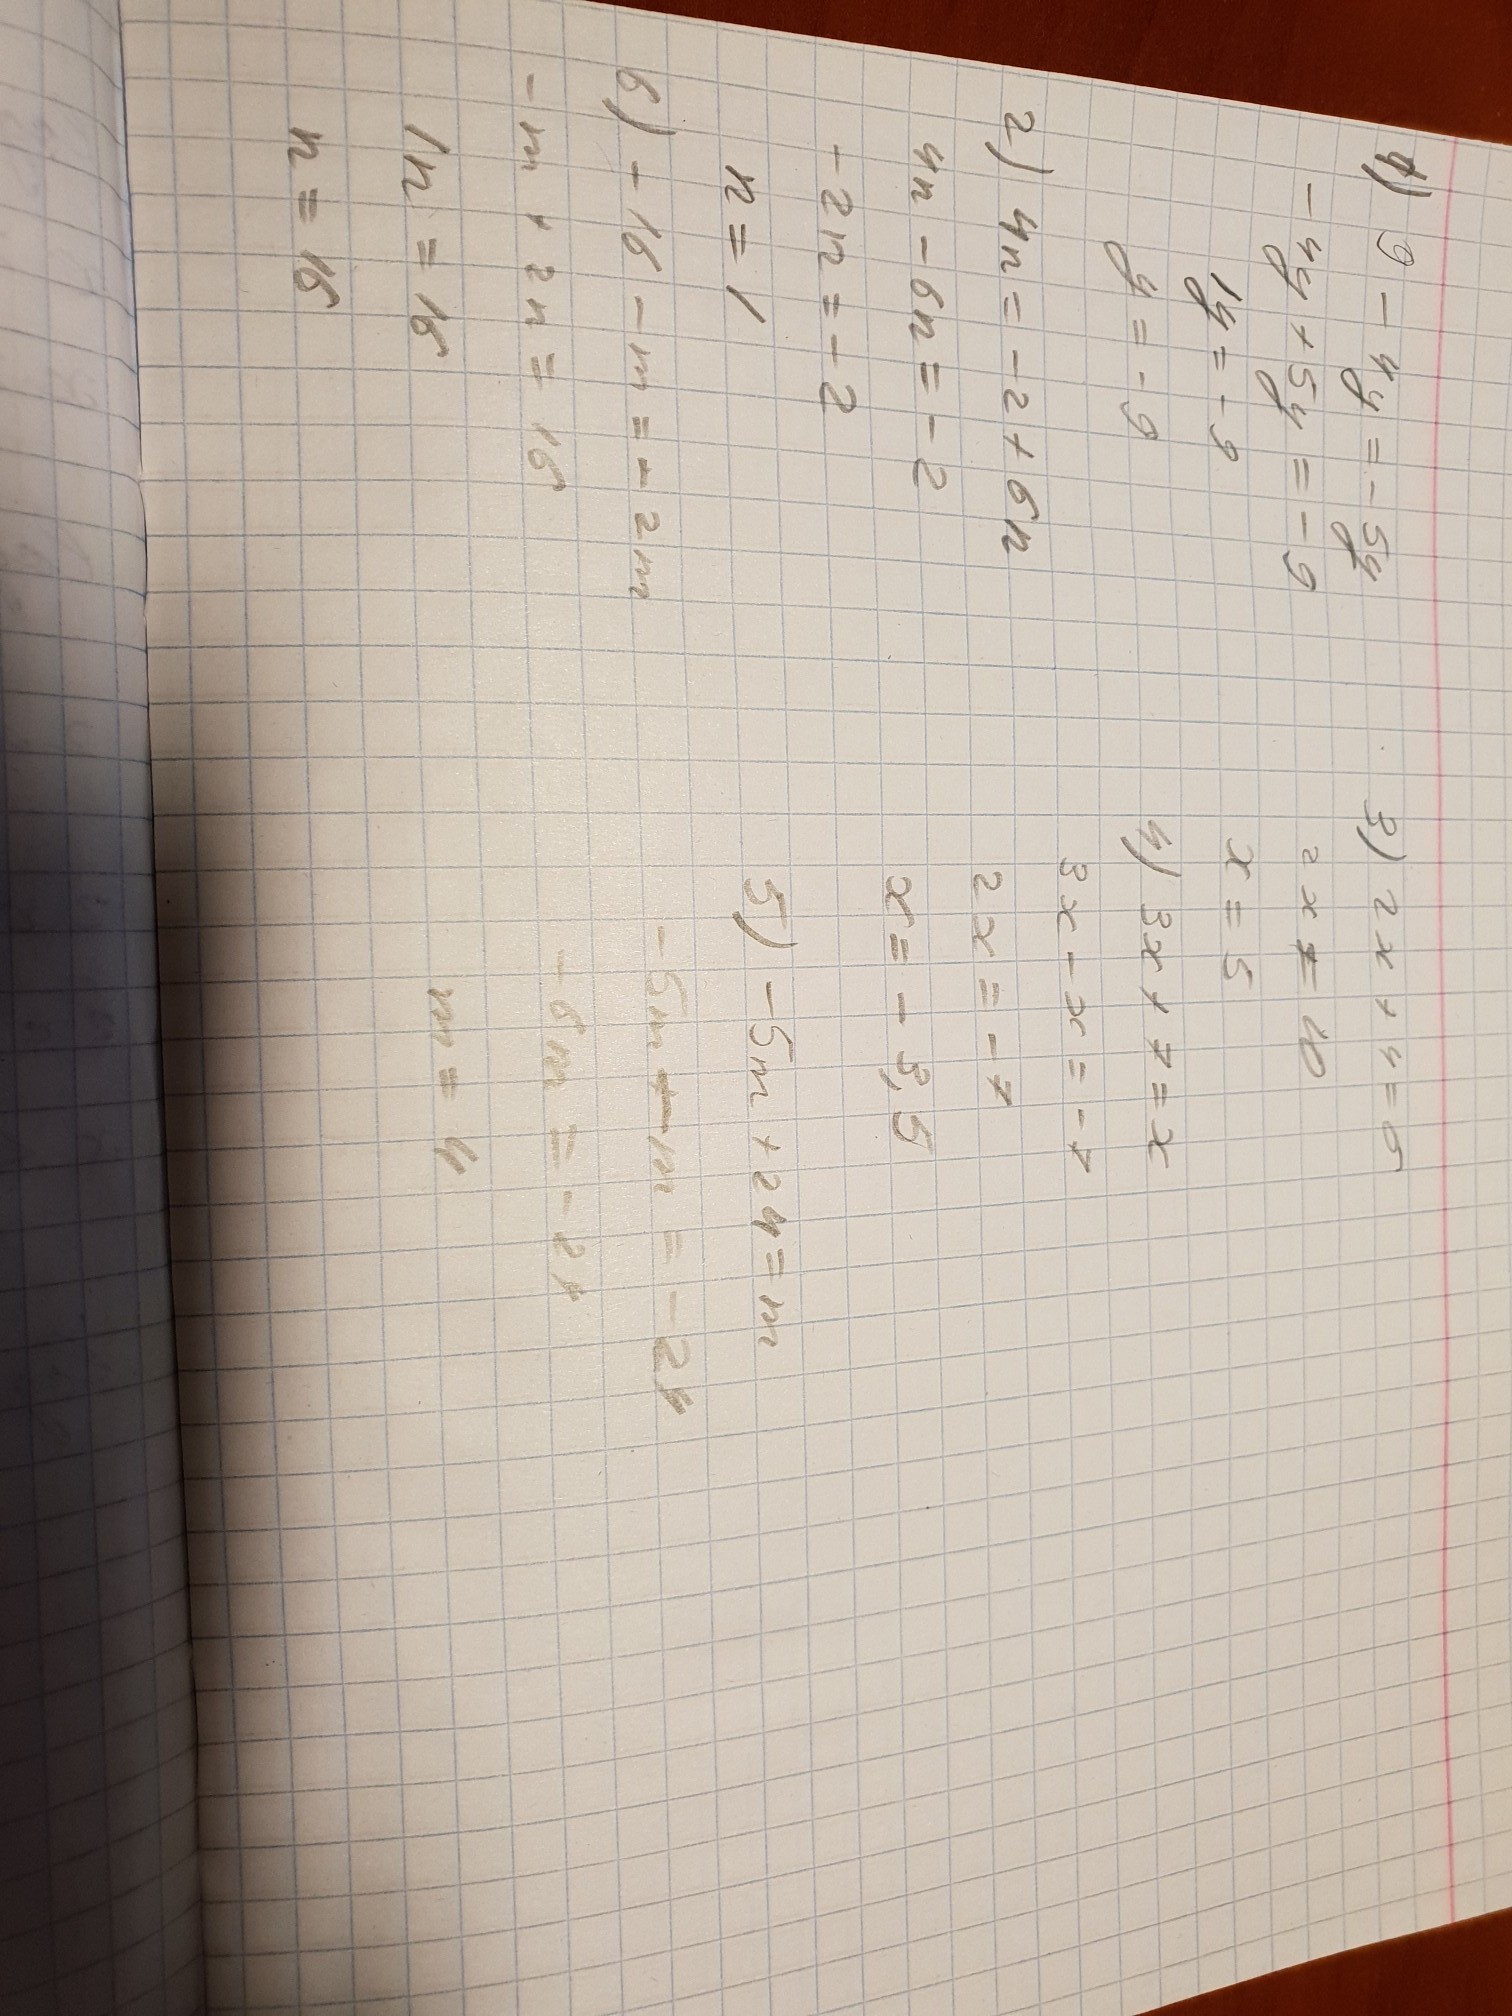 1) 9 - 4y = - 5y
- 4y + 5y = - 9
1y = - 9
y = - 9
2) 4n = - 2 + 6n
4n - 6n = - 2
- 2n = - 2
n = 1
6) - 16 - m = - 2m
- m + 2m = 16
1m = 16
m = 16
3) 2x + 4 = 6
2x = 10
x = 5
4) 3x + 7 = x
3x - x = - 7
2x = - 7
x = - 3,5
5) - 5m + 24 = m
- 5m - m = - 24
- 6m = - 24
m = 4